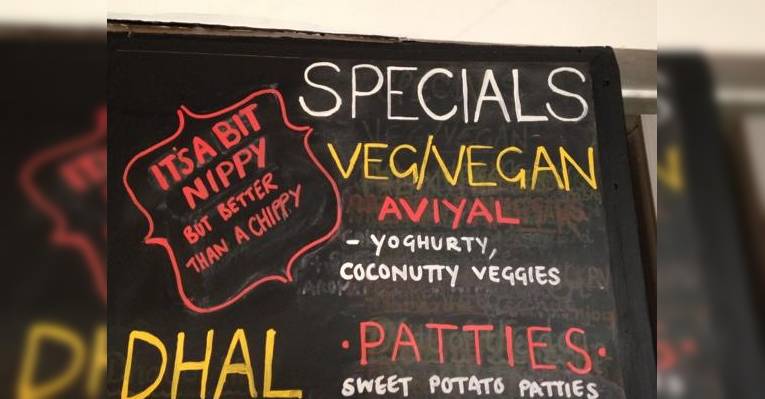 IT'S A BIT
NIPPY
BUT BETTER
THAN A CHIPPY
SPECIALS
VEG/VEGAN
AVIYAL
- YOGHURTY,
COCONUTTY VEGGIES
DHAL
·PATTIES·
SWEET POTATO PATTIES